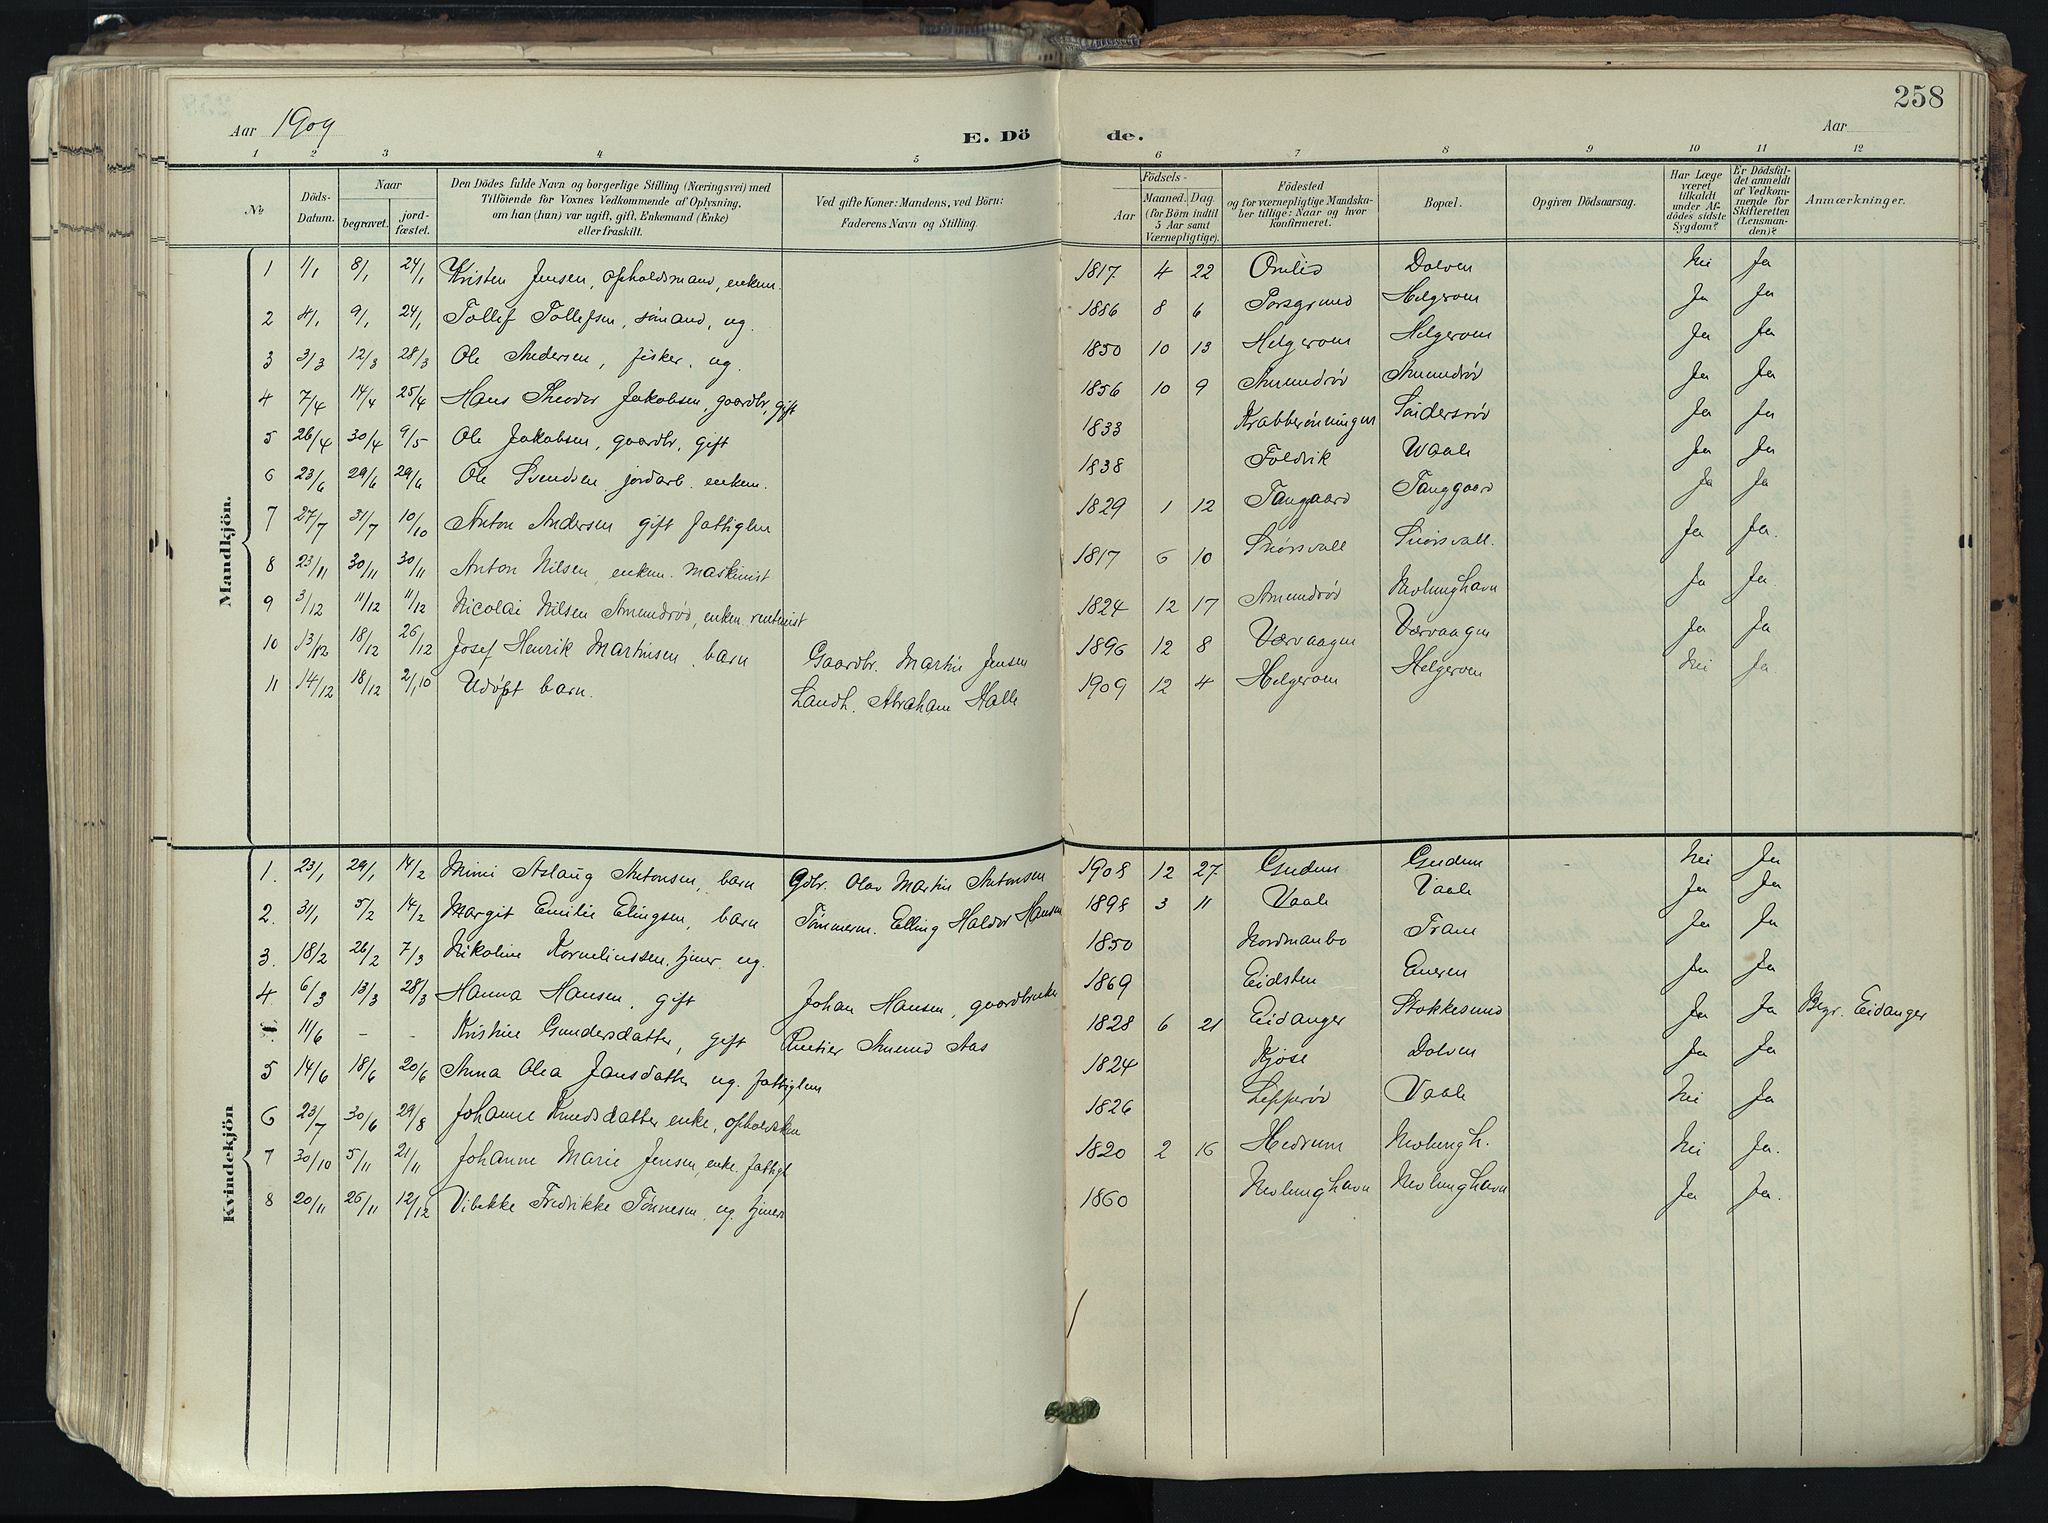 258
Aar 1909
E. Dö
de.
Aar
1 2 3 4 5 6 7 8 9 10 11 12
No
Döds-Datum.
Naar
begravet.
jord-fæstet.
Den Dödes fulde Navn og borgerlige Stilling (Næringsvei) med
Tilföiende for Voxnes Vedkommende af Oplysning,
om han (hun) var ugift, gift, Enkemand (Enke)
eller fraskilt.
Ved gifte Koner: Mandens, ved Börn:
Faderens Navn og Stilling.
Födsels-
Aar
Maaned. Dag.
(for Börn indtil
5 Aar samt
Værnepligtige).
Födested
og for værnepligtige Mandska-
ber tillige: Naar og hvor
konfirmeret.
Bopæl.
Opgiven Dödsaarsag.
Har Læge
været
tilkaldt
under Af-
dödes sidste
Sygdom?
Er Dödsfal-
det anmeldt
af Vedkom-
mende for
Skifteretten
(Lensman-
den)?
Anmærkninger.
Mandkjön.
1 1/1 8/1 24/1 Kristen Jensen, opholdsmand, enkem. 1817 4 22 Omlid Dolven Nei Ja
2 4/1 9/1 24/1 Tollef Tollefsen, sömand, ug. 1886 8 6 Porsgrund Helgerom Ja Ja
3 3/3 12/3 28/3 Ole Andersen, fisker, ug. 1850 10 13 Helgerom Helgerom Ja Ja
4 7/4 14/4 25/4 Hans Theodor Jakobsen, gaardbr, gift 1856 10 9 Amundrød Amundrød Ja Ja
5 26/4 30/4 9/5 Ole Jakobsen, gaardbr, gift 1833 Krabberønningen Söndersrød Ja Ja
6 23/6 29/6 29/6 Ole Svendsen, jordarb. enkem. 1838 Foldvik Waale Ja Ja
7 27/7 31/7 10/10 Anton Andersen gift fattiglem 1829 1 12 Tangaard Tanggaard Ja Ja
8 23/11 30/11 30/11 Anton Nilsen, enkem. maskinist 1817 6 10 Snørsvall Snørsvall. Ja Ja.
9 3/12 11/12 11/12 Nicolai Nilsen Amundrød, enkem. rentenist 1824 12 17 Amundrød Nevlunghavn Ja Ja.
10 13/12 18/12 26/12 Josef Henrik Martinsen, barn Gaardbr. Martin Jensen 1896 12 8 Værvaagen Værvaagen Ja Ja
11 14/12 18/12 2/1 10 Udøpt barn. Landh. Abraham Halle 1909 12 4 Helgerom Helgerom Nei Ja.
Kvindekjön
1. 23/1 29/1 14/2 Mimi Aslaug Antonsen, barn Gdbr. Olav Martin Antonsen 1908 12 27 Gudem Gudem Nei Ja
2. 31/1 5/2 14/2 Margit Emilie Elingsen, barn Tömmerm. Elling Haldor Hansen 1898 3 11 Vaale Vaale Ja Ja
3. 18/2 26/2 7/3 Nikoline Korneliussen, tjener, ug. 1850 Nordmanbo Fram Ja Ja
4 6/3 13/3 28/3 Hanna Hansen, gift Johan Hansen, gaardbruker 1869 Eidsten Ja Ja
11/6 – Kristine Gundersdatter, gift Rentier Amund Aas 1828 6 21 Eidanger Stokkesund Ja Ja Begr. Eidanger
5 14/6 18/6 20/6 Anna Olea Jansdatter ug. fattiglem 1824 Kjose Dolven Ja Ja
6 23/7 30/6 29/8 Johanne Knudsdatter enke, opholdsken 1826 Lepperød Vaale Nei Ja
7 30/10 5/11 21/11 Johanne Marie Jensen, enke. fattigl 1820 2 16 Hedrum Nevlungh. Nei Ja.
8 20/11 26/11 12/12 Vibekke Fredrikke Tønnesen, ug. tjener 1860 Nevlunghavn Nevlunghavn Ja Ja.